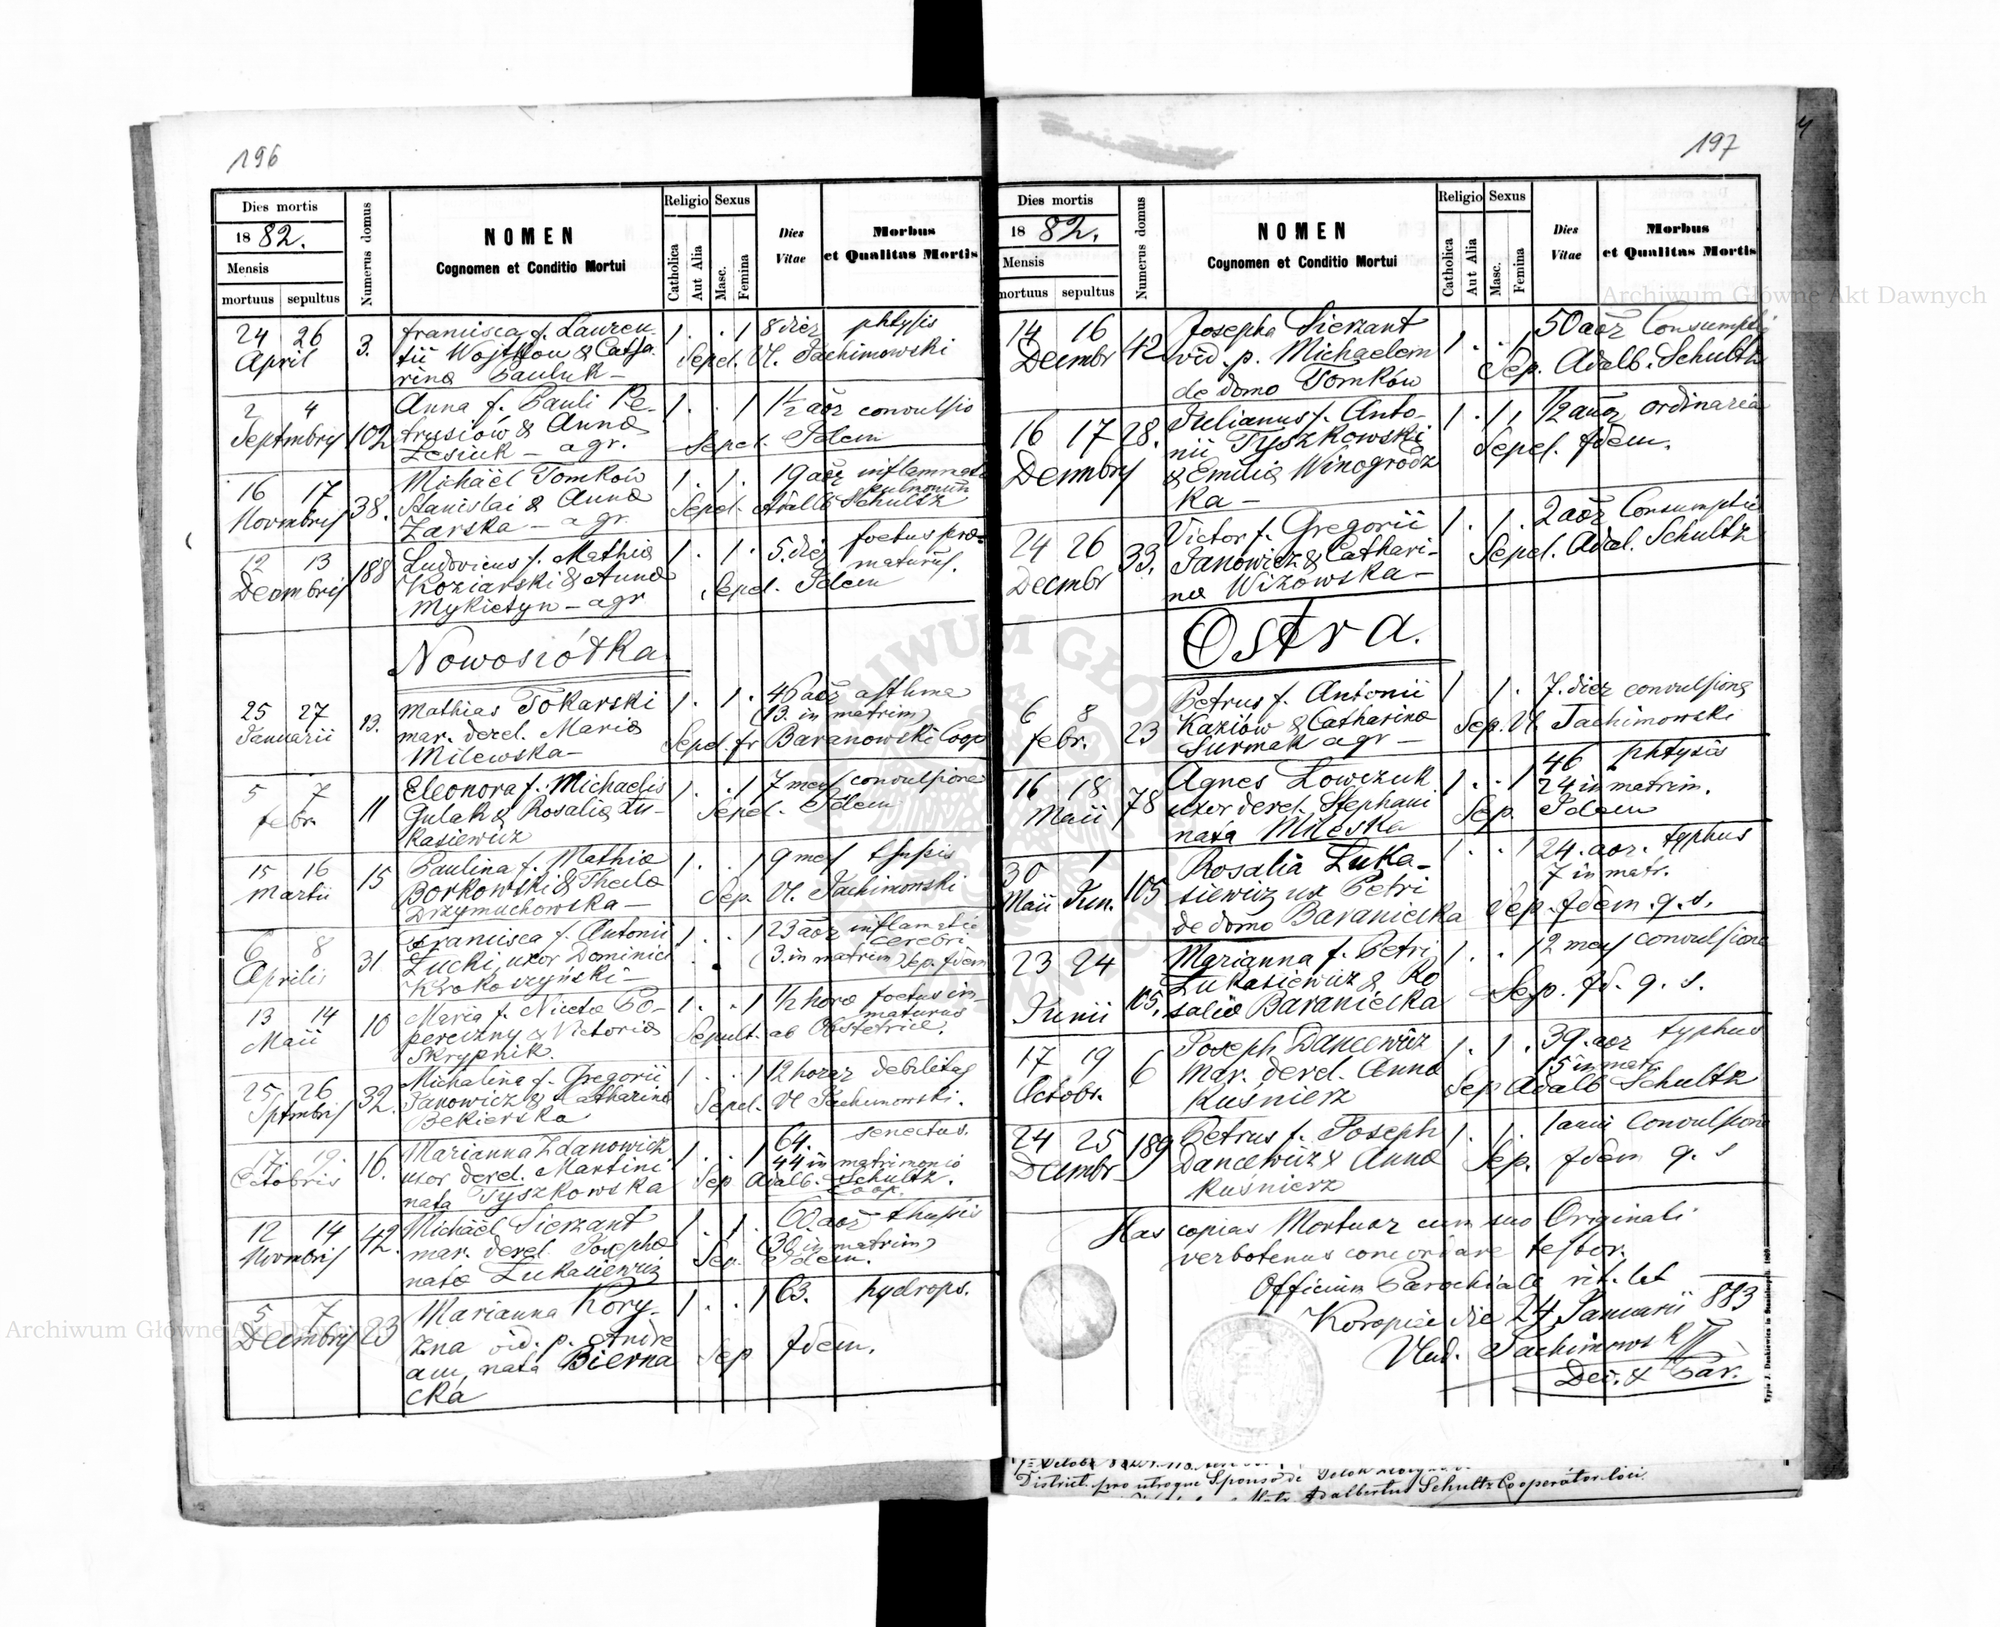 196
Dies mortis
18 82.
Mensis
mortuus sepultus
Numerus domus
NOMEN
Cognomen et Conditio Mortui
Religio
Catholica
Aut Alia
Sexus
Masc.
Femina
Dies
Vitae
Morbus
et Qualitas Mortis
24 26 3. Francisca f. Lauren- 1 . . 1 8 dier phtysis
April tii Wojtkow & Catha Sepel. Vl. Jachimowski
rina Pauluk -
2 4 Anna f. Pauli Pe- 1 . . 1 1½ aor convulsio
Septmbris 102 trusiów & Anna Sepel. Idem
Lesiuk - agr.
16 17 38. Michäel Tomków 1 . 1 . 19 aor inflammat
Novmbris Stanislai & Anna pulmonum
Zarska - agr. Sepel. Adalb Schultz
12 13 188 Ludovicus f. Mathia 1 . 1 . 5. dies foetus præ-
Decmbris Koziarski & Anna maturus.
Mykietyn - agr Sepel. Idem
Nowosiółka
25 27 13. Mathias Tokarski 1 . 1 . 46 aor asthma
Januarii mar. derel. Maria (13. in matrim)
Milewska - Sepel. fr Baranowski Coop
5 7 11 Eleonora f. Michaelis 1 . . 1 7 mens convulsione
febr. Gulak & Rosalia Lu- Sepel. Idem
kasiewicz
15 16 15 Paulina f. Mathia 1 . . 1 9 mens
Martii Borkowski & Thecla Sep. Vl. Jachimowski
Drzymuchowska -
6 8 31 Francisca f. Antonii 1 . . 1 23 aor inflamatio
Aprilis Łucki, uxor Dominici cerebri.
Krokoszyński - (3. in matrim) Sep. Idem
13 14 10 Maria f. Niceta Po- 1 . . 1 ½ hora foetus im-
Maii pereczny & Victoria maturus
Skrypnik. Sepult. ab Obstetrice.
25 26 32. Michalina f. Gregorii 1 . . 1 12 horar debilitas
Sptmbris Janowicz & Catharina Sepel. Vl Jachimowski.
Bekierska
17 19. 16. Marianna Zdanowicz 1 . . 1 64. senectus.
Octobris uxor derel. Martini 44 in matrimonio
nata Tyszkowska Sep Adalb. Schultz.
Coop.
12 14 42. Michäel Sierzant 1 . 1 . 60. aor
Novmbris mar. derel. Josepha (30 in matrim)
nata Łukasiewicz Sep. Idem.
5 7 23 Marianna Kory- 1 . . 1 63. hydrops.
Decmbris zna vid. p. Andre
am, nata Bierna Sep Idem.
cka
197
Dies mortis
18 82.
Mensis
mortuus sepultus
Numerus domus
NOMEN
Cognomen et Conditio Mortui
Religio
Catholica
Aut Alia
Sexus
Masc.
Femina
Dies
Vitae
Morbus
et Qualitas Mortis
14 16 42 Josepha Sierzant 1 . . 1 50 aor Consumptio
Decmbr vid. p. Michaelem Sep. Adalb. Schultz
de domo Tomków
16 17 28. Julianus f. Anto- 1 . 1 . ½ anor ordinaria
Decmbris nii Tyszkowski Sepel. Idem.
& Emilia Winogrodz
ka -
24 26 33. Victor f. Gregorii 1 . 1 . 2 aor Consumptio
Decmbr Janowicz & Cathari- Sepel. Adal. Schultz
na Wizowska -
Ostra.
6 8 23 Petrus f. Antonii 1 1 . 7. dier convulsione
febr. Kaziów & Catharina Sep. Vl. Jachimowski
Surmak agr -
16 18 78 Agnes Łowczuk 1 . . 1 46 phtysis
Maii uxor derel. Stephani 24 in matrim.
nata Mileska Sep. Idem
30 1 105 Rosalia Łuka- 1 . . 1 24. aor. typhus
Maii Jun. siewicz ux Petri 7 in matr.
de domo Baraniecka Sep. Idem. q. s.
23 24 105. Marianna f. Petri 1 . . 1 2 mens convulsione
Junii Łukasiewicz & Ro Sep. Id. q. s.
salia Baraniecka
17 19 6 Joseph Dancewicz 1 . 1 . 39. aor typhus
Octobr. mar. derel. Anna 15 in matr.
Kuśnierz Sep Adalb Schultz
24 25 189 Petrus f. Joseph 1 . 1 . 1 anni Convulsione
Decmbr Dancewicz & Anna Sep. Idem q. s
Kuśnierz
Has copias Mortuor cum suo Originali
verbotenus concordare testor.
Officium Parochiale rit. lat
Koropiec die 24 Januarii 883
Vlad. Jachimowski
Dec. & Par.
District. pro utroque Sponso de
Adalbertus Schultz Cooperator loci
Archiwum Główne Akt Dawnych
Archiwum Główne Akt Dawnych